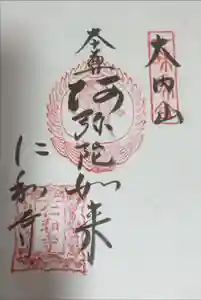 大内山
本尊
阿弥陀如来
仁和寺